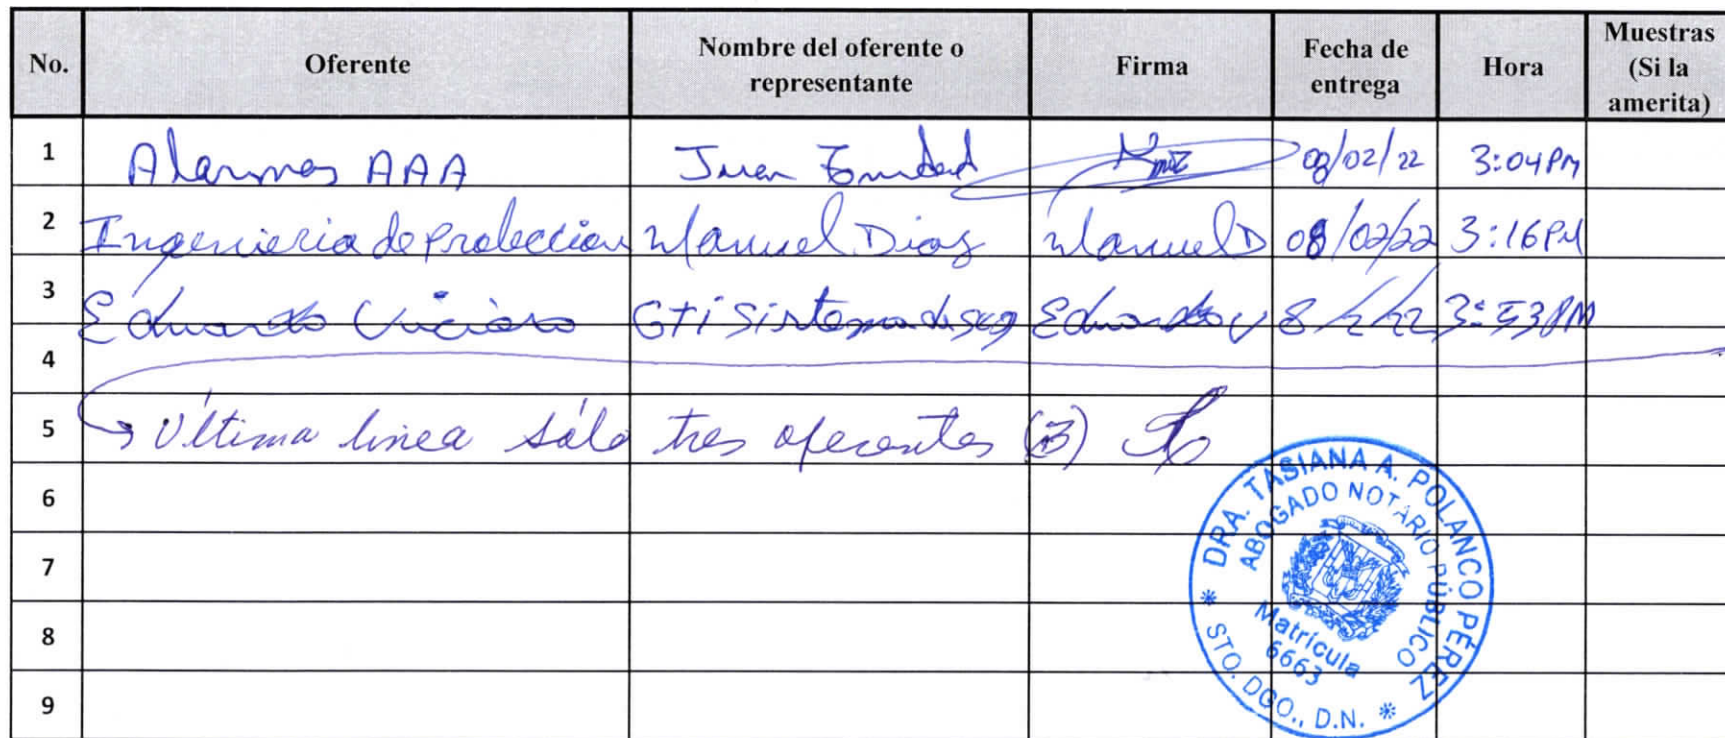 No. Oferente Nombre del oferente o representante Firma Fecha de entrega Hora Muestras (Si la amerita)
1 Alarmas AAA Juan 08/02/22 3:04PM
2 Ingenieria de Proteccion Manuel Diaz Manuel D 08/02/22 3:16PM
3 Eduardo Vicioso GTi Sistema de seg Eduardo V 8/2/22 3:53PM
4
5 Última linea sólo tres oferentes (3)
6
7
8
9
DRA. TASIANA A. POLANCO PÉREZ
ABOGADO NOTARIO PÚBLICO
Matrícula
6663
STO. DGO., D.N.